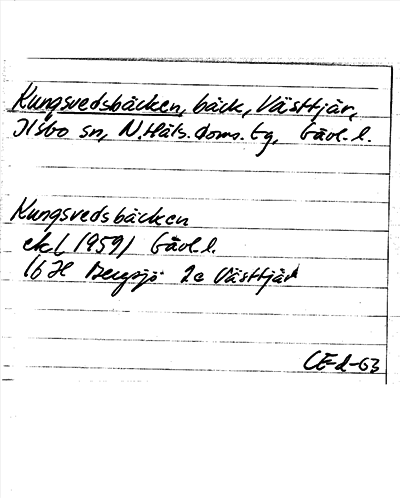 Kungsvedsbäcken, bäck, Västtjär,
Ilsbo sn, N. Häls. doms. tg, Gävl. l.
Kungsvedsbäcken
ekl 1959/ Gävl l.
16 H Bergsjö 2c Västtjär
CE-d-63